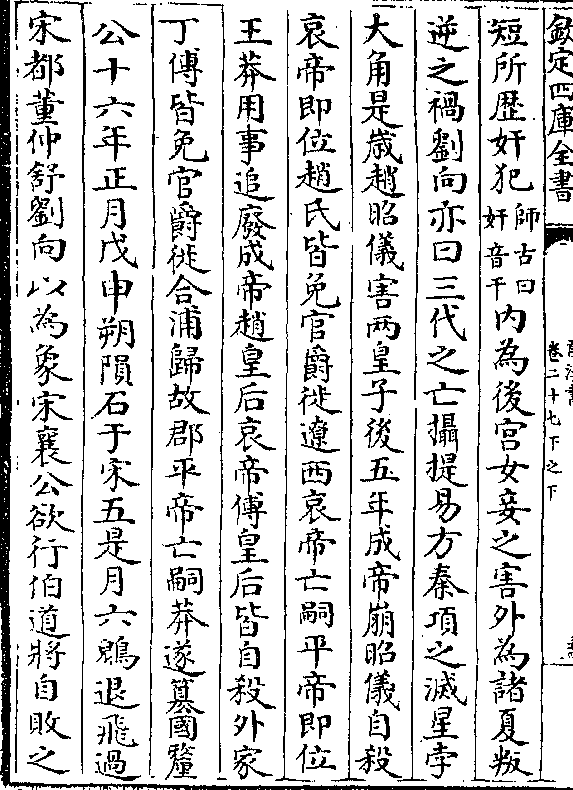 欽定四庫全書
卷二十七下之下
短所歴奸犯師古曰奸音干内為後宫女妾之害外為諸夏叛
逆之禍劉向亦曰三代之亡攝提易方秦項之滅星孛
大角是嵗趙昭儀害两皇子後五年成帝崩昭儀自殺
哀帝即位趙氏皆免官爵徙遼西哀帝亡嗣平帝即位
王莽用事追廢成帝趙皇后哀帝傅皇后皆自殺外家
丁傅皆免官爵徙合浦歸故郡平帝亡嗣莽遂簒國釐
公十六年正月戊申朔隕石于宋五是月六鶂退飛過
宋都董仲舒劉向以為象宋襄公欲行伯道將自敗之